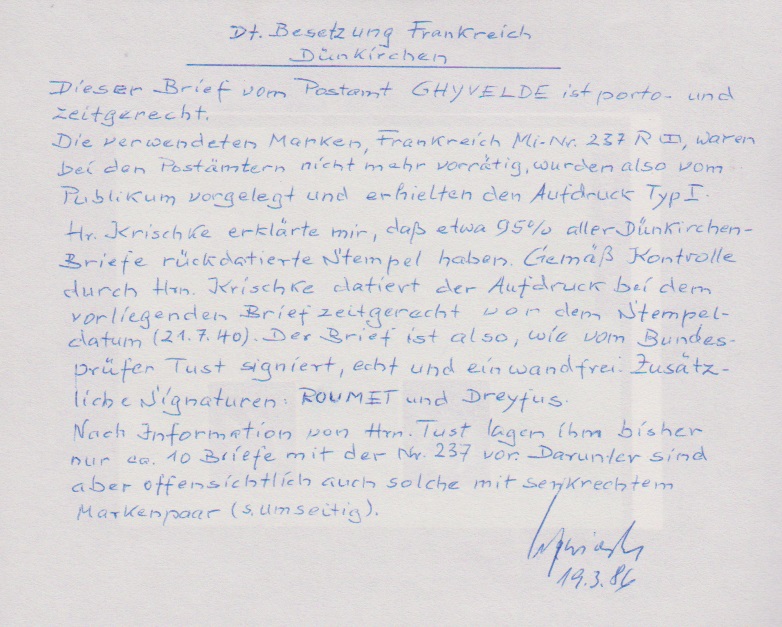 Dt. Besetzung Frankreich
Dünkirchen
Dieser Brief vom Postamt GHYVELDE ist porto- und
zeitgerecht.
Die verwendeten Marken, Frankreich Mi-Nr. 237 R (II), waren
bei den Postämtern nicht mehr vorrätig, wurden also vom
Publikum vorgelegt und erhielten den Aufdruck Typ I.
Hr. Krischke erklärte mir, daß etwa 95% aller Dünkirchen-
Briefe rückdatierte Stempel haben. Gemäß Kontrolle
durch Hrn. Krischke datiert der Aufdruck bei dem
vorliegenden Brief zeitgerecht vor dem Stempel-
datum (21.7.40). Der Brief ist also, wie vom Bundes-
prüfer Tust signiert, echt und einwandfrei. Zusätz-
liche Signaturen: ROUMET und Dreyfus.
Nach Information von Hrn. Tust lagen ihm bisher
nur ca. 10 Briefe mit der Nr. 237 vor. Darunter sind
aber offensichtlich auch solche mit senkrechtem
Markenpaar (s. umseitig).
19.3.86